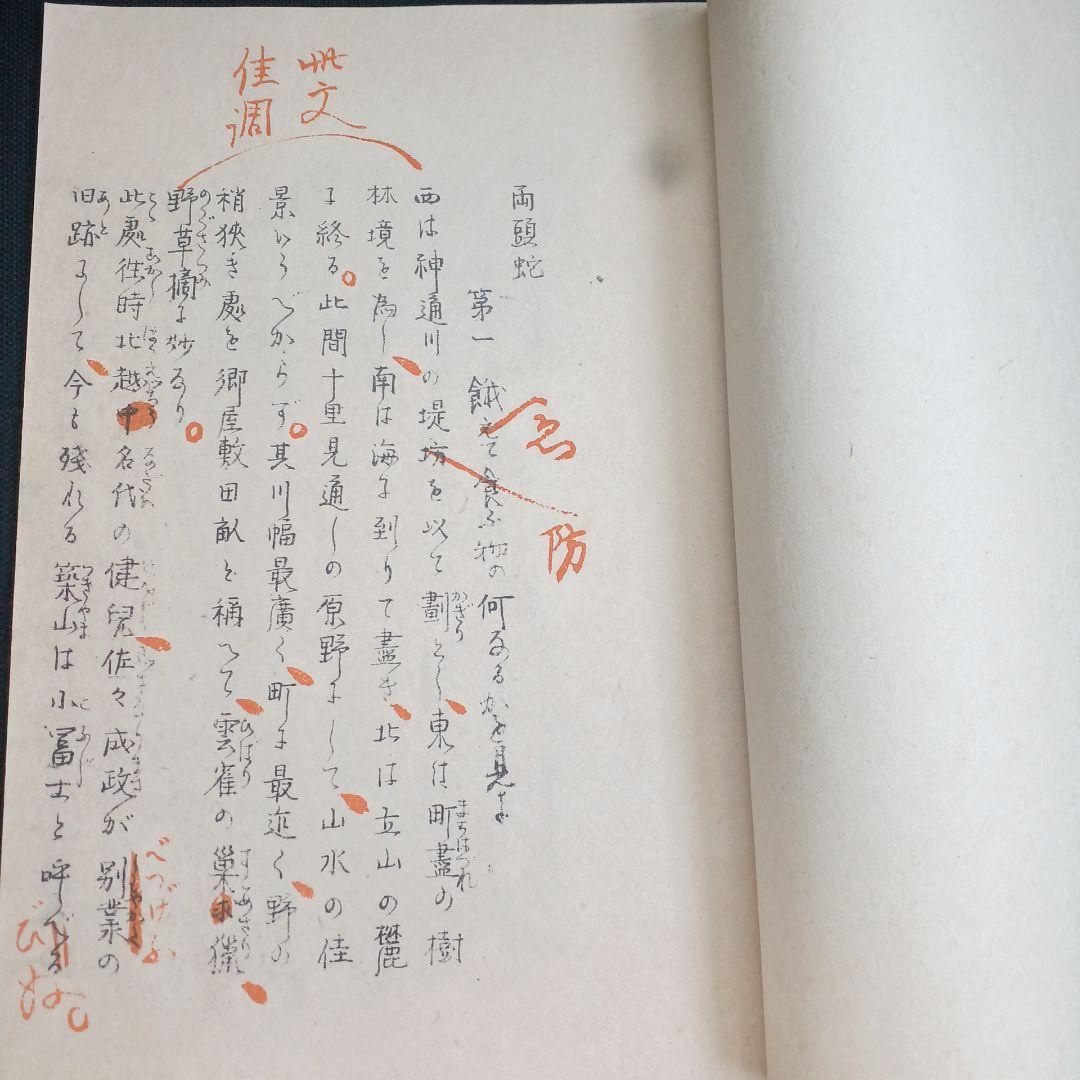 此文
佳調
両頭蛇
第一 餓えて食ふ物の何なるかを見よ
ゑ
防
西は神通川の堤坊を以て劃とし、東は町盡の樹
かぎり
まちはづれ
林境を為し、南は海に到りて盡き、北は立山の麓
に終る。此間十里見通しの原野にして、山水の佳
景いふべからず。其川幅最廣く、町に最近く、野の
稍狭き處を郷屋敷田畝と称へて、雲雀の巣猟、
ひばり
すあさり
野草摘に妙なり。
のぐさつみ
此處往時北越中名代の健児佐々成政が別業の
べつげふ
旧跡にして、今も残れる築山は小富士と呼べる
あと
つきやま
こふじ
びぬ